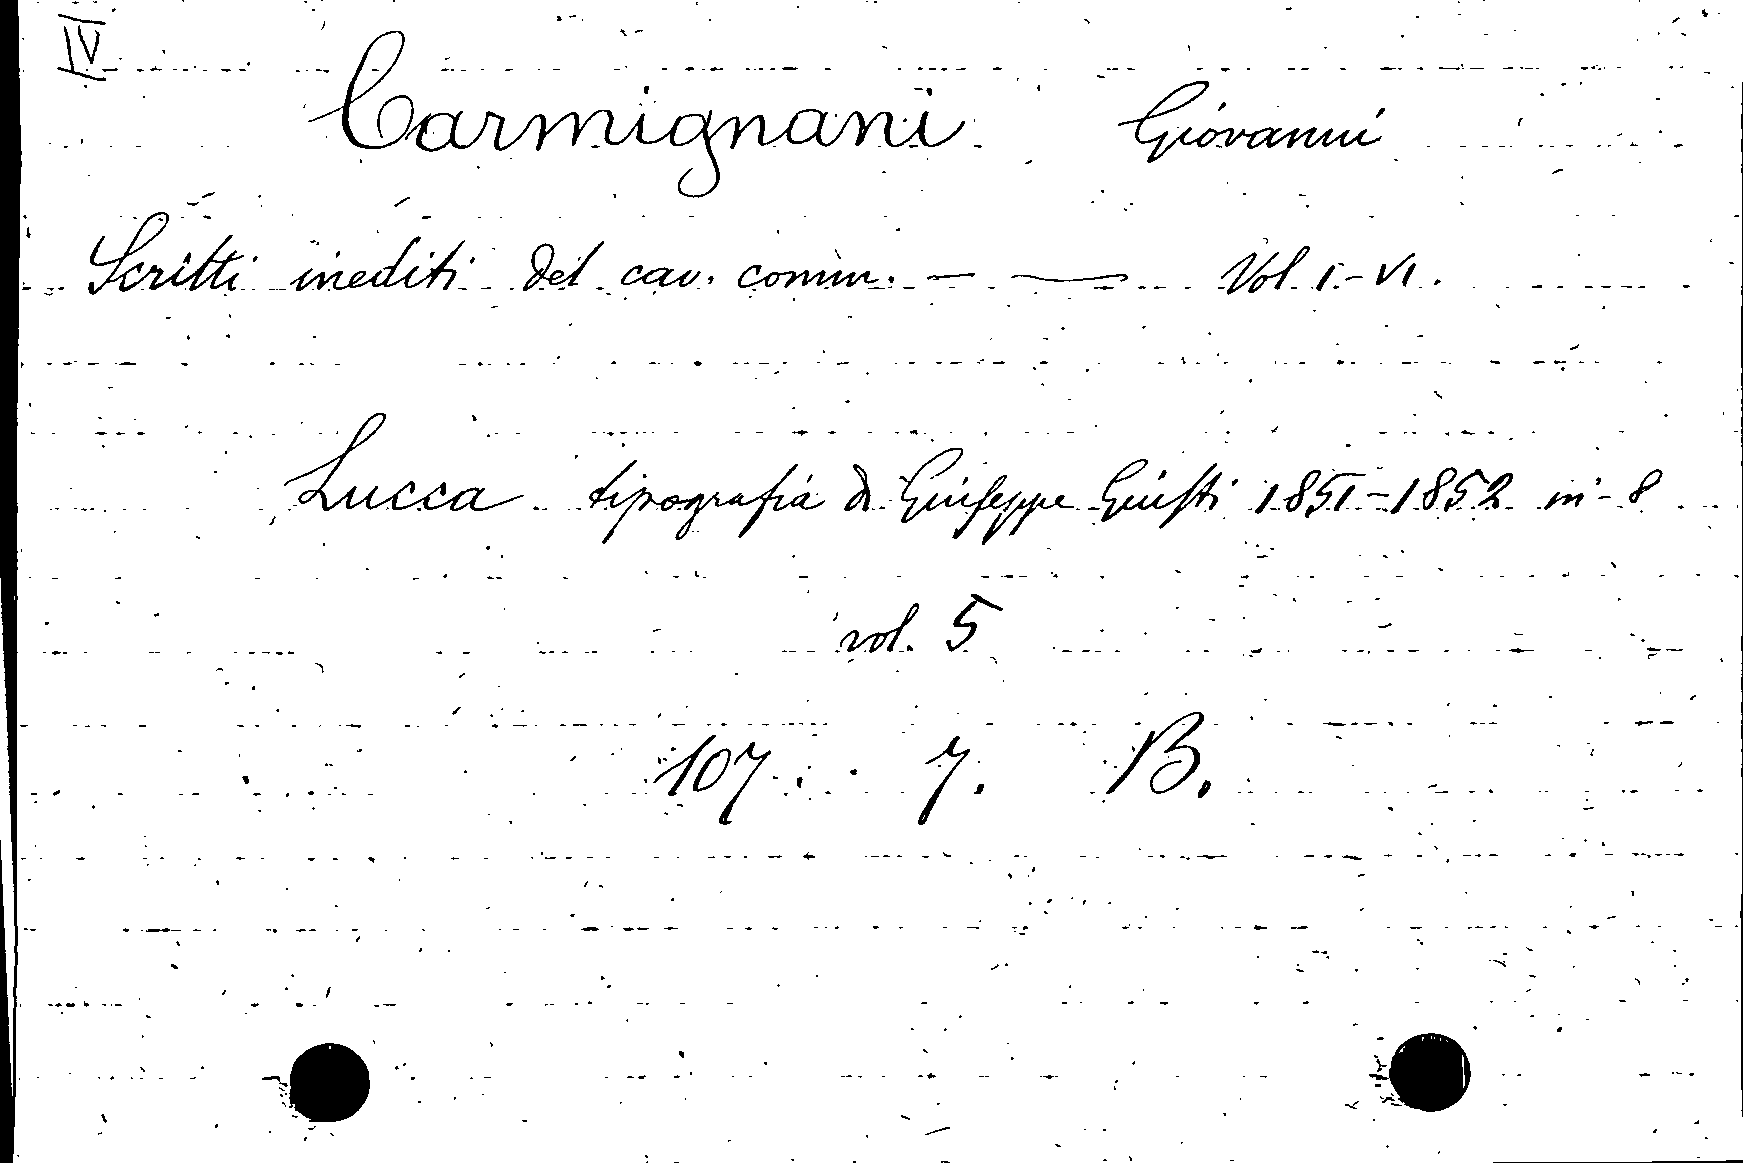 IV
Carmignani Giovanni
Scritti inediti del cav. comm. — — Vol. I-VI.
Lucca tipografia di Giuseppe Giusti 1851-1852 in-8
vol. 5
107. 7. B.